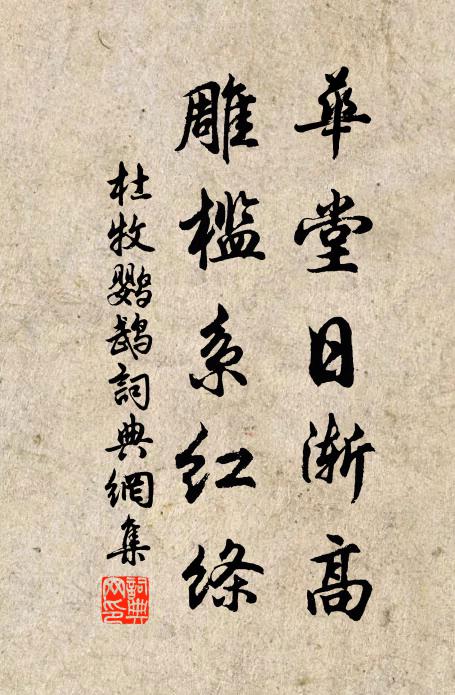 華堂日漸高
雕檻系紅絛
杜牧鸚鵡詞典網集
詞典網印